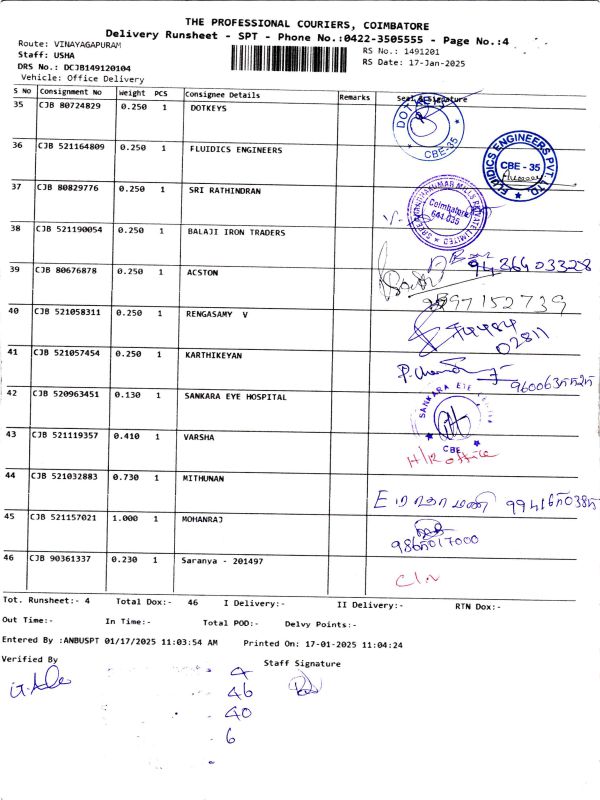 THE PROFESSIONAL COURIERS, COIMBATORE
Delivery Runsheet - SPT - Phone No.:0422-3505555 - Page No.:4
Route: VINAYAGAPURAM
Staff: USHA
DRS No.: DCJB149120104
Vehicle: Office Delivery
RS No.: 1491201
RS Date: 17-Jan-2025
S No Consignment No Weight PCS Consignee Details Remarks Seal & Signature
35 CJB 80724829 0.250 1 DOTKEYS
CBE-35
36 CJB 521164809 0.250 1 FLUIDICS ENGINEERS
FLUIDICS ENGINEERS PVT. LTD.
CBE - 35
37 CJB 80829776 0.250 1 SRI RATHINDRAN
Coimbatore
641 035
38 CJB 521190054 0.250 1 BALAJI IRON TRADERS
9436403328
39 CJB 80676878 0.250 1 ACSTON
9597152739
40 CJB 521058311 0.250 1 RENGASAMY V
02811
41 CJB 521057454 0.250 1 KARTHIKEYAN
42 CJB 520963451 0.130 1 SANKARA EYE HOSPITAL
SANKARA EYE
CBE
43 CJB 521119357 0.410 1 VARSHA
H/R office
44 CJB 521032883 0.730 1 MITHUNAN
45 CJB 521157021 1.000 1 MOHANRAJ
9865017000
46 CJB 90361337 0.230 1 Saranya - 201497
Tot. Runsheet:- 4 Total Dox:- 46 I Delivery:- II Delivery:- RTN Dox:-
Out Time:- In Time:- Total POD:- Delvy Points:-
Entered By :ANBUSPT 01/17/2025 11:03:54 AM Printed On: 17-01-2025 11:04:24
Verified By Staff Signature
4
46
40
6